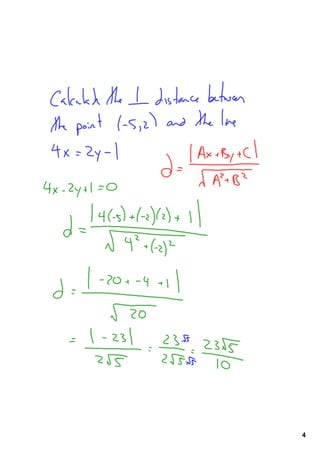 Calculate the ⊥ distance between
the point (-5,2) and the line
4x = 2y - 1
d = |Ax + By + C| / √(A² + B²)
4x - 2y + 1 = 0
d = |4(-5) + (-2)(2) + 1| / √(4² + (-2)²)
d = |-20 + -4 + 1| / √20
= |-23| / 2√5 = 23 √5 / 2√5 √5 = 23√5 / 10
4